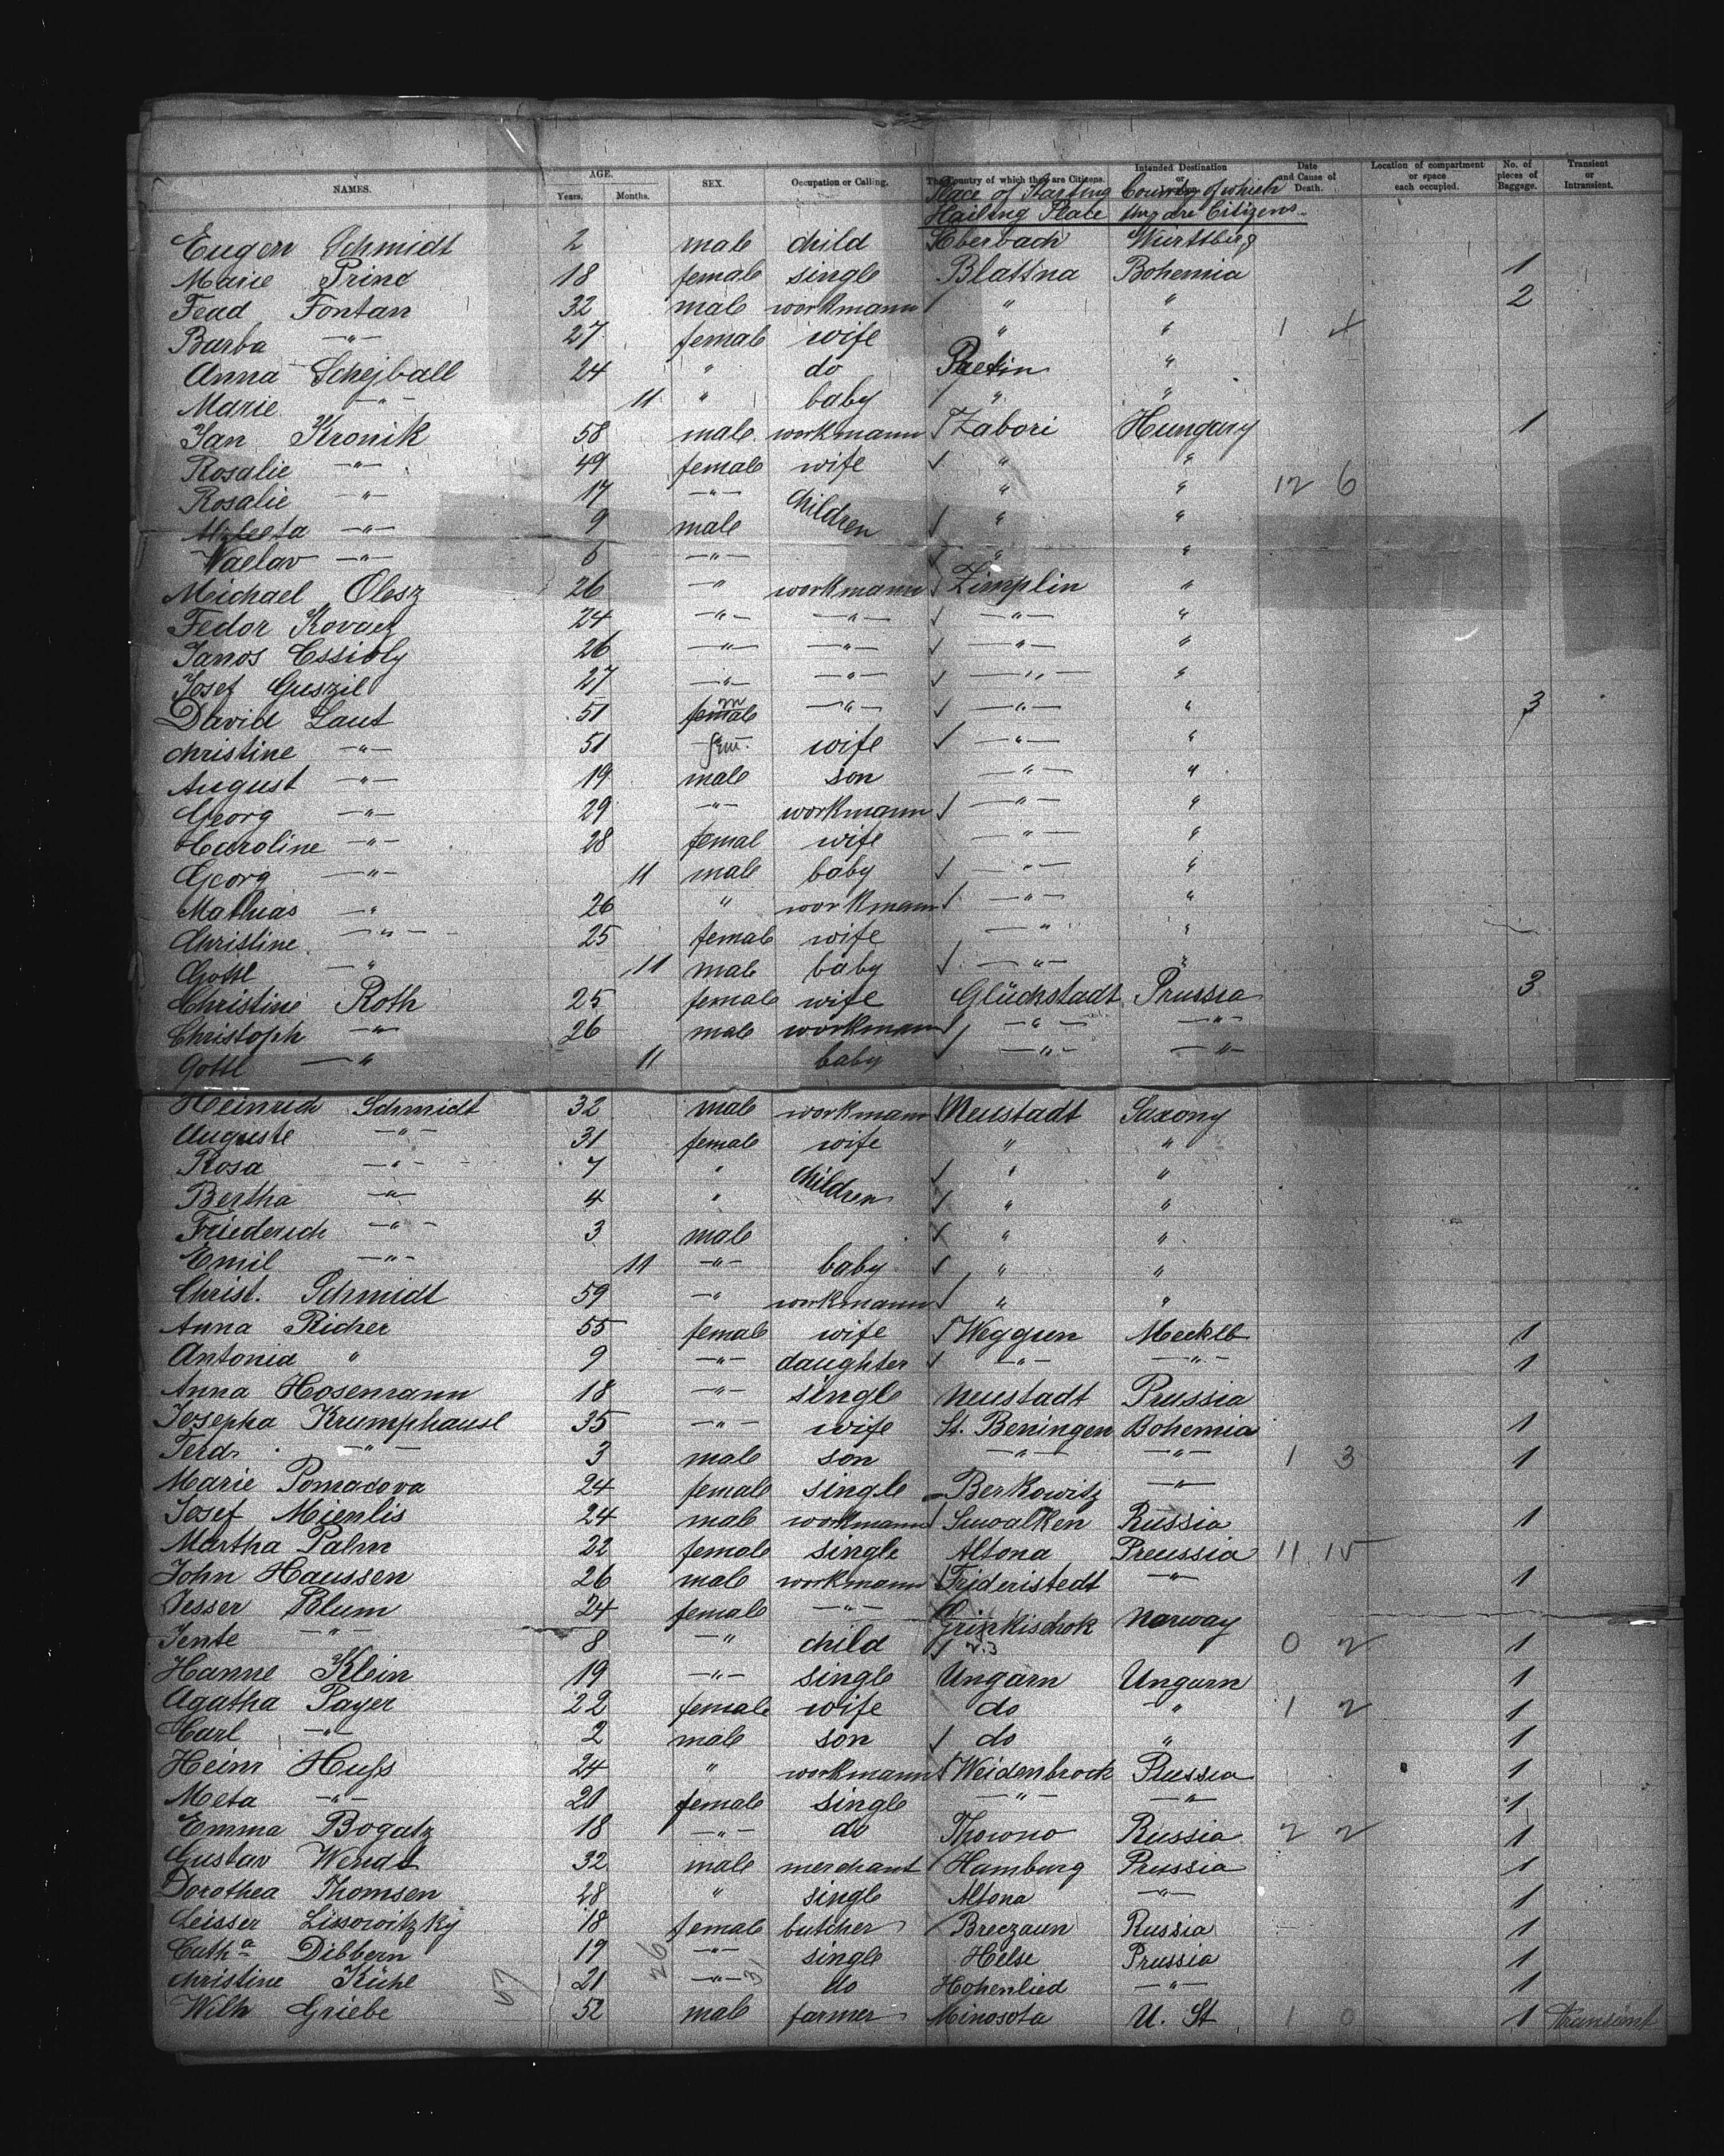 NAMES. AGE. Years. Months. SEX. Occupation or Calling. The Country of which they are Citizens. Intended Destination or Date and Cause of Death. Location of compartment or space each occupied. No. of pieces of Baggage. Transient or Intransient.
Place of Starting County of which
Hailing Place they are Citizens
Eugen Schmidt 2 male child Eberbach Württbürg
Marie Princ 18 female single Blattna Bohemia 1
Fead Fontan 32 male workmann " " 2
Barba —"— 27 female wife " " 1 4
Anna Schejball 24 " do Pactin "
Marie —"— 11 " baby " "
Jan Kronik 58 male workmann Zabori Hungary 1
Rosalie —"— 49 female wife " "
Rosalie —"— 17 —"— children " " 12 6
—"— 9 male " "
Vaclav —"— 6 —"— " "
Michael Olesz 26 —" workmann Zimplin "
Fedor Kovacz 24 —"— —"— —"— "
Janos Essibly 26 —"— —"— —"— "
Josef Guszil 27 —"— —"— —"— "
David Laut 51 female m —"— —"— " 3
Christine —"— 51 fem. wife —"— "
August —"— 19 male son —"— "
Georg —"— 29 —"— workmann —"— "
Caroline —"— 28 femal wife —"— "
Georg —"— 11 male baby —"— "
Mathias —" 26 " workmann —"— "
Christine —"— 25 female wife —"— "
Gottl —" 11 male baby —"— "
Christine Roth 25 female wife Glückstadt Prussia 3
Christoph —"— 26 male workmann —"— —"—
Gottl —" 11 baby —"— —"—
Heinrich Schmidt 32 male workmann Neustadt Saxony
Auguste —"— 31 female wife " "
Rosa —"— 7 " children " "
Bertha —"— 4 " " "
Friederich —"— 3 male " "
Emil —"— 11 —"— baby " "
Christ. Schmidt 59 —" workmann " "
Anna Richer 55 female wife Weggun Mecklb 1
Antonia " 9 —"— daughter —"— —"— 1
Anna Hosemann 18 —"— single Neustadt Prussia
Josepha Krumphausl 35 —"— wife St. Beningen Bohemia 1
Ferd. —"— 3 male son —"— —"— 1 3 1
Marie Pomacova 24 female single Berkowitz —"—
Josef Mienlis 24 male workmann Suwalken Russia 1
Martha Palm 22 female single Altona Preussia 11 15
John Haussen 26 male workmann Frideristedt —"— 1
Jesser Blum 24 female —"— Grinkischok Norway
Jente —"— 8 —" child 0 2 1
Hanne Klein 19 —"— single Ungarn Ungarn 1
Agatha Payer 22 female wife do " 1 2 1
Carl —"— 2 male son do " 1
Heinr Hufs 24 " workmann Weidenbrock Prussia 1
Meta —"— 20 female single —"— —"— 1
Emma Bogatz 18 —"— do Thowno Russia 2 2 1
Gustav Wendt 32 male merchant Hamburg Prussia 1
Dorothea Thomsen 28 " single Altona —"— 1
Leisser Lissowitzky 18 female butcher Breczaun Russia 1
Catha Dibbern 19 —"— single Helse Prussia 1
Christine Kühl 21 —"— do Hohenlied —"— 1
57 26 31
Wilh Griebe 52 male farmer Minosota U. St 1 0 1 transient